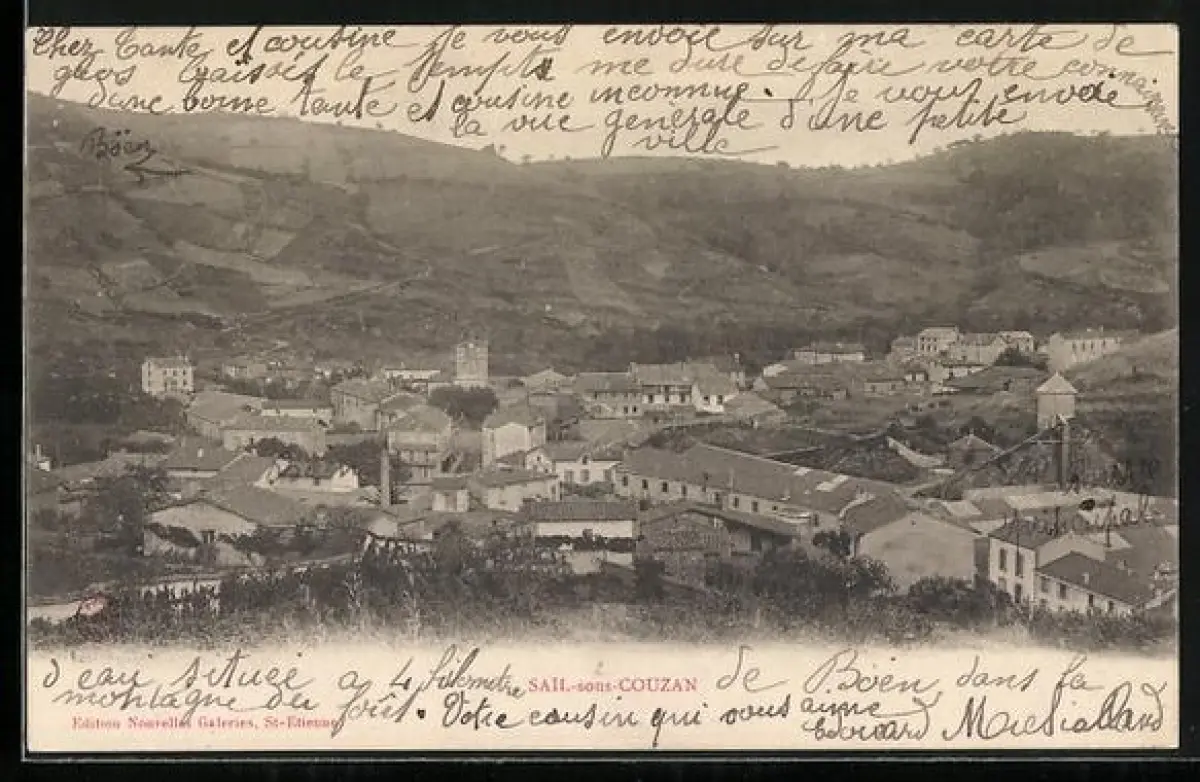 Cher Tante et cousine Je vous envoie sur ma carte de
gros baisés le tempts me dure de faire votre connaissance
dune bonne tante et cousine inconnue. Je vous envoie
la vue générale d'une petite
ville
Böen
principal
d'eau située a 4 kilometre SAIL-sous-COUZAN de Böen dans la
montagne du
Votre cousin qui vous aime
Edouard
Edition Nouvelles Galeries, St-Etienne